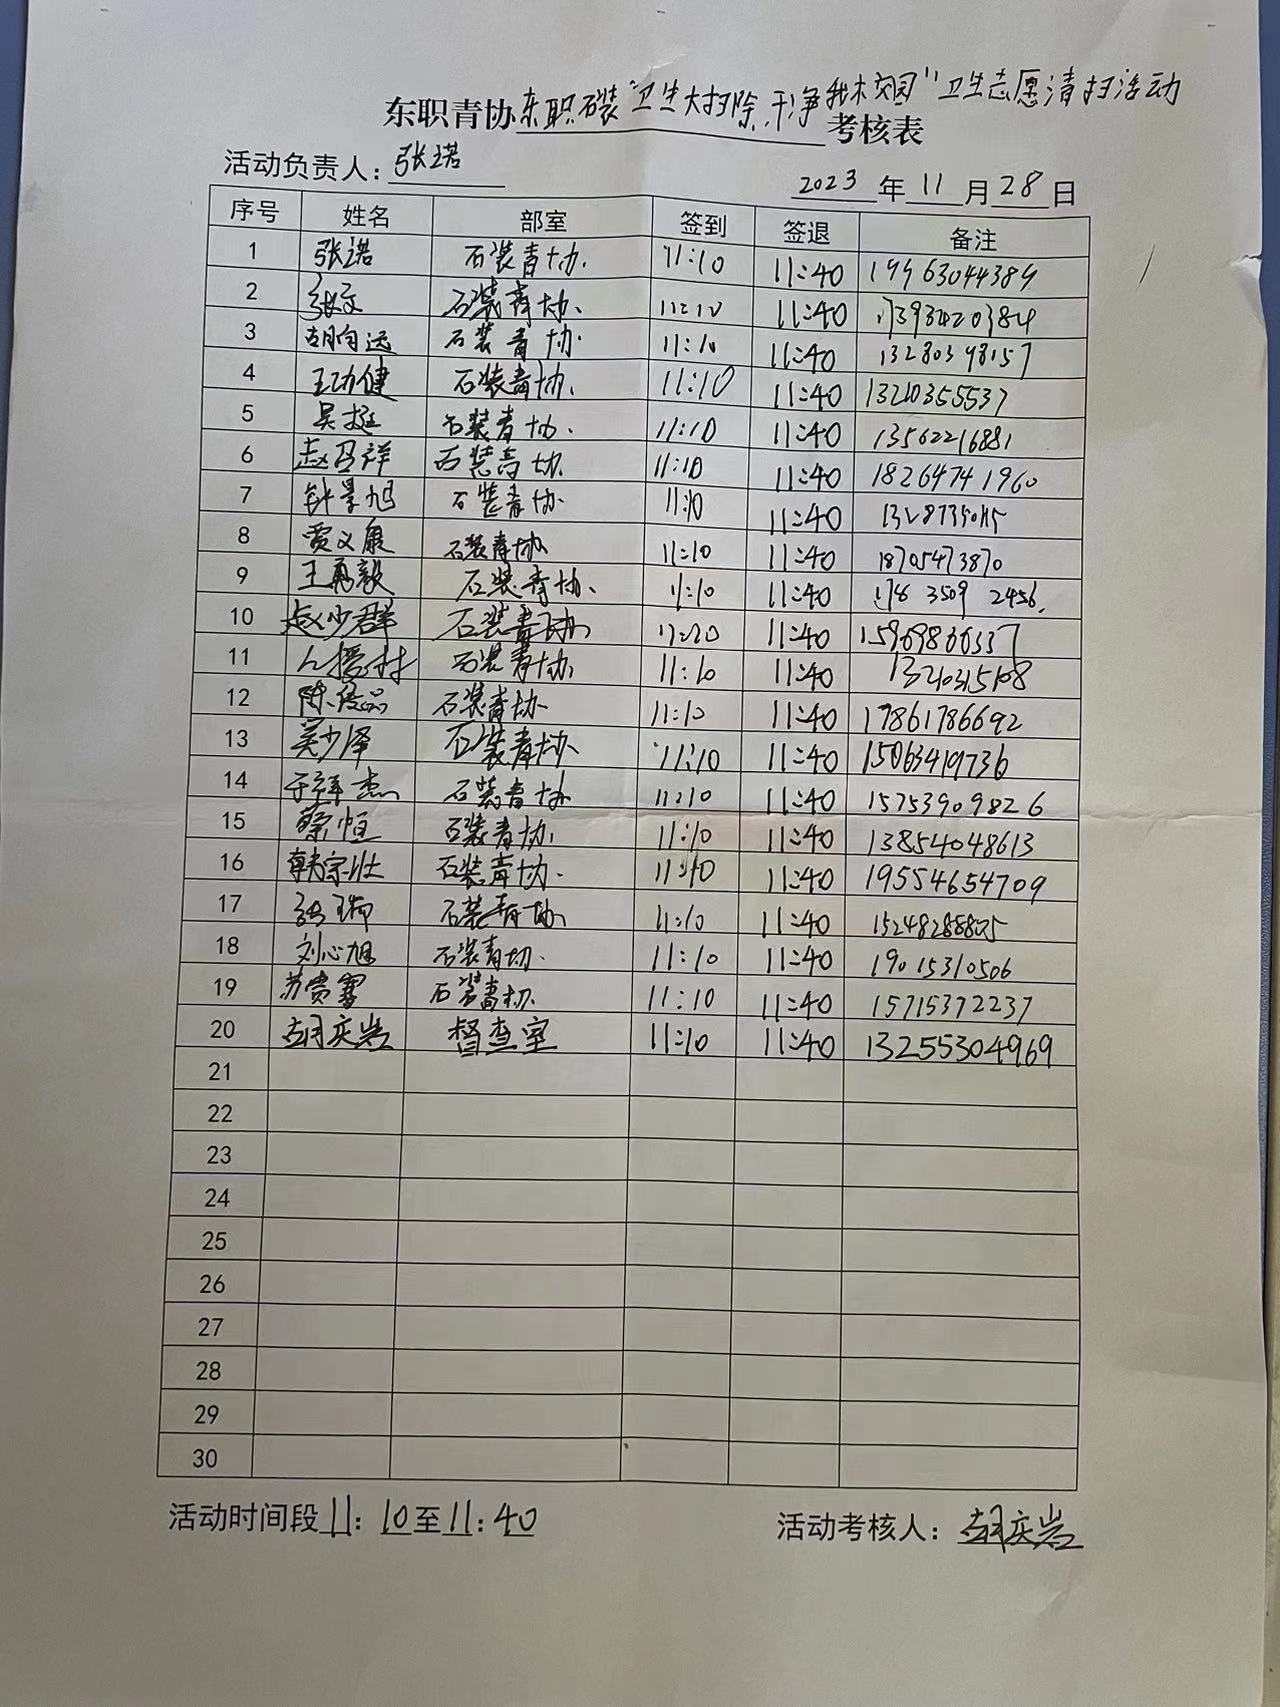 东职青协东职石装“卫生大扫除,干净我木校园”卫生志愿清扫活动考核表
活动负责人：张诺
2023年11月28日
序号 姓名 部室 签到 签退 备注
1 张诺 石装青协. 11:10 11:40 19963044389
2 张文 石装青协. 11:10 11:40 17393420384
3 胡向运 石装青协. 11:10 11:40 13280398157
4 王功健 石装青协. 11:10 11:40 13210355537
5 吴挺 石装青协. 11:10 11:40 13562216881
6 赵乃祥 石装青协. 11:10 11:40 18264741960
7 钟景旭 石装青协. 11:10 11:40
8 贾义康 石装青协 11:10 11:40 18705473870
9 王勇毅 石装青协. 11:10 11:40 178 3509 2456.
10 赵少群 石装青协 11:20 11:40 15969866337
11 石装青协. 11:10 11:40 13210315108
12 陈俊品 石装青协. 11:10 11:40 17861786692
13 吴少泽 石装青协. 11:10 11:40 15063419736
14 于祥杰 石装青协 11:10 11:40 15753909826
15 蔡恒 石装青协. 11:10 11:40 13854048613
16 韩宗壮 石装青协. 11:10 11:40 19554654709
17 石装青协. 11:10 11:40
18 刘心旭 石装青协. 11:10 11:40 19015310506
19 苏贵 石装青协. 11:10 11:40 15715372237
20 胡庆岩 督查室 11:10 11:40 13255304969
21
22
23
24
25
26
27
28
29
30
活动时间段11：10至11：40 活动考核人：胡庆岩